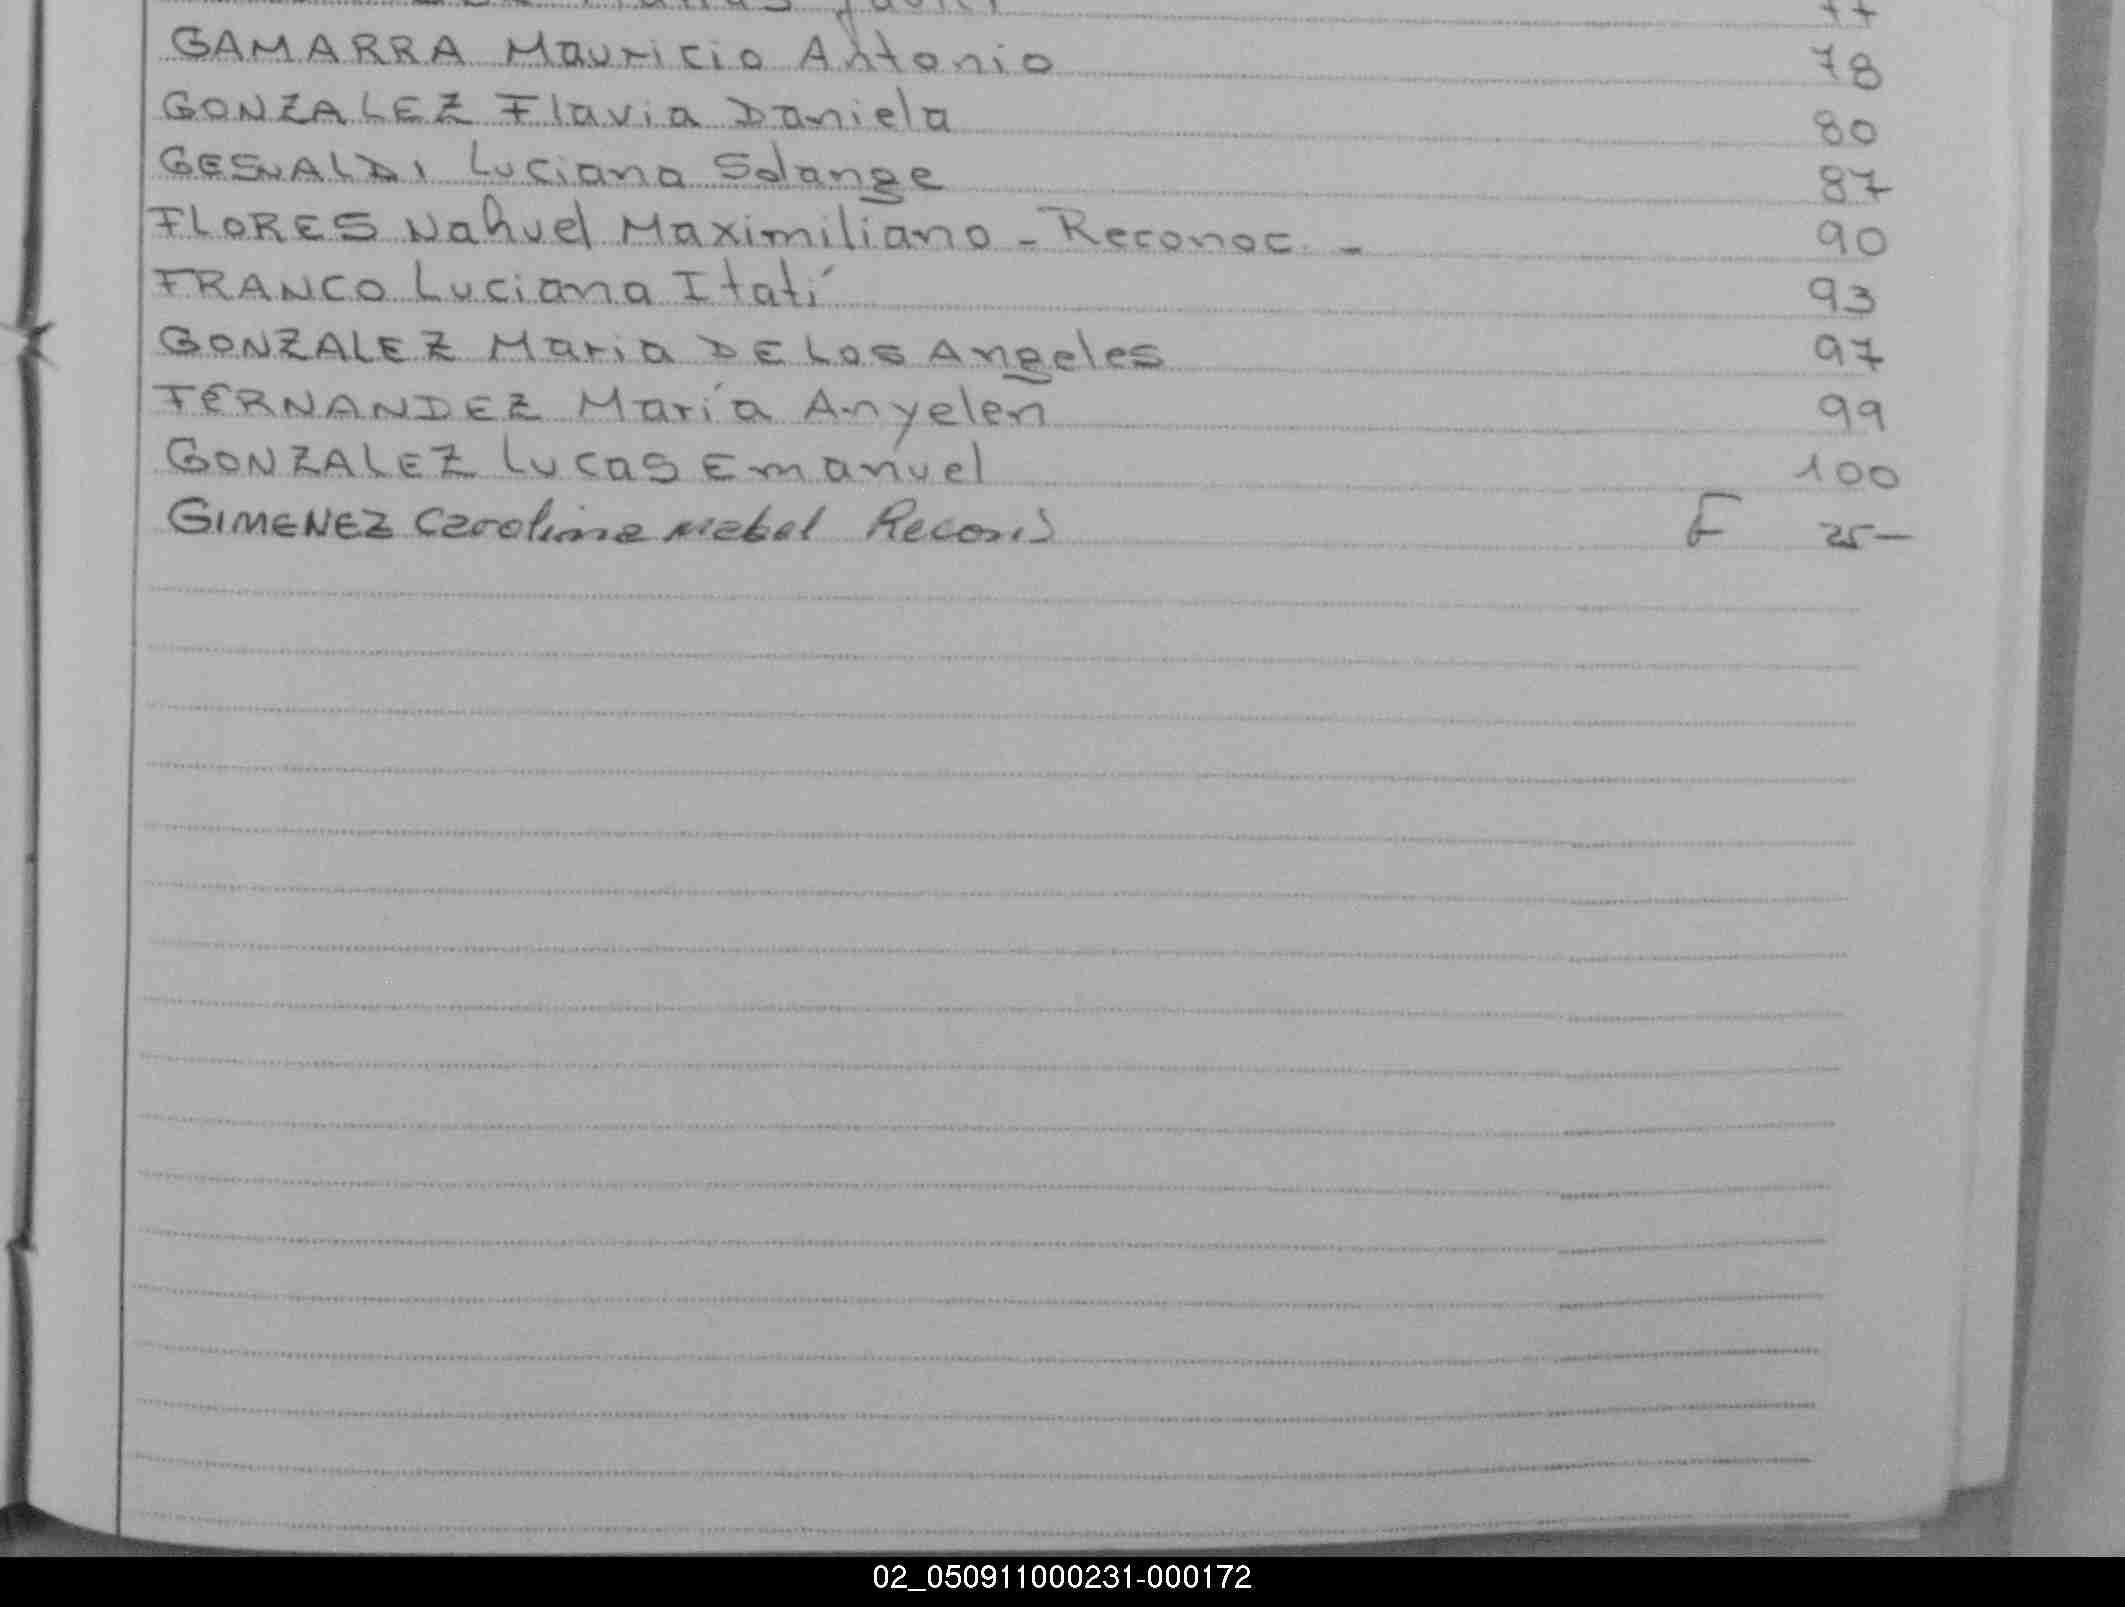 77
GAMARRA Mauricio Antonio 78
GONZALEZ Flavia Daniela 80
GESUALDI Luciana Solange 87
FLORES Nahuel Maximiliano - Reconoc. - 90
FRANCO Luciana Itatí 93
GONZALEZ Maria DE Los Angeles 97
FERNANDEZ María Anyelen 99
GONZALEZ Lucas Emanuel 100
GIMENEZ Carolina Mabel F 25-
02_050911000231-000172